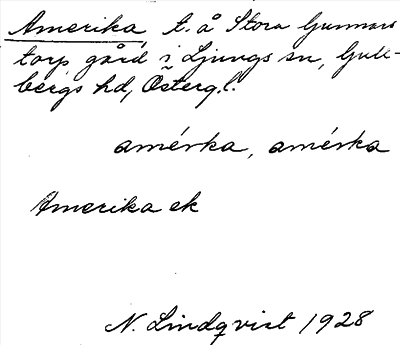 Amerika, t. å Stora Gunnars
torp gård i Ljungs sn, Gull-
bergs hd, Österg.l.
amérka, amérka
Amerika ek
N. Lindqvist 1928